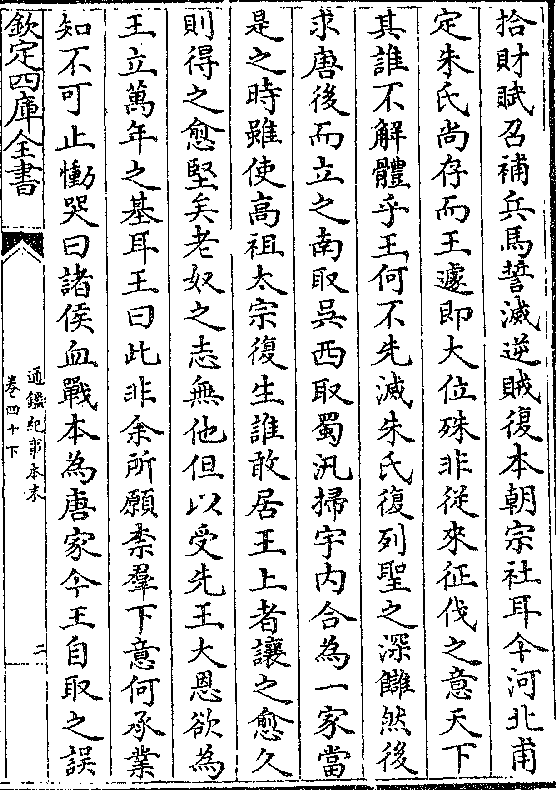 拾財賦召補兵馬誓滅逆賊復本朝宗社耳今河北甫
定朱氏尚存而王遽即大位殊非從來征伐之意天下
其誰不解體乎王何不先滅朱氏復列聖之深讎然後
求唐後而立之南取吳西取蜀汎掃宇内合為一家當
是之時雖使高祖太宗復生誰敢居王上者讓之愈久
則得之愈堅矣老奴之志無他但以受先王大恩欲為
王立萬年之基耳王曰此非余所願柰羣下意何承業
知不可止慟哭曰諸侯血戰本為唐家今王自取之誤
欽定四庫全書
通鑑紀事本末
卷四十下
二